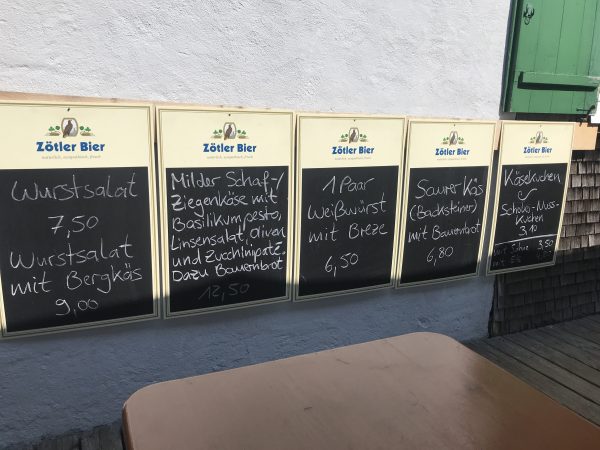 Zötler Bier
natürlich, sympathisch, frisch
Wurstsalat
7,50
Wurstsalat
mit Bergkäs
9,00
Zötler Bier
natürlich, sympathisch, frisch
Milder Schaf-/
Ziegenkäse mit
Basilikumpesto,
Linsensalat, Oliven
und Zucchinipaté.
Dazu Bauernbrot
12,50
Zötler Bier
natürlich, sympathisch, frisch
1 Paar
Weißwürst
mit Breze
6,50
Zötler Bier
natürlich, sympathisch, frisch
Saurer Käs
(Backsteiner)
mit Bauernbrot
6,80
Zötler Bier
Käsekuchen
&
Schoko-Nuss-
Kuchen
3,10
mit Sahne 3,50
mit Eis